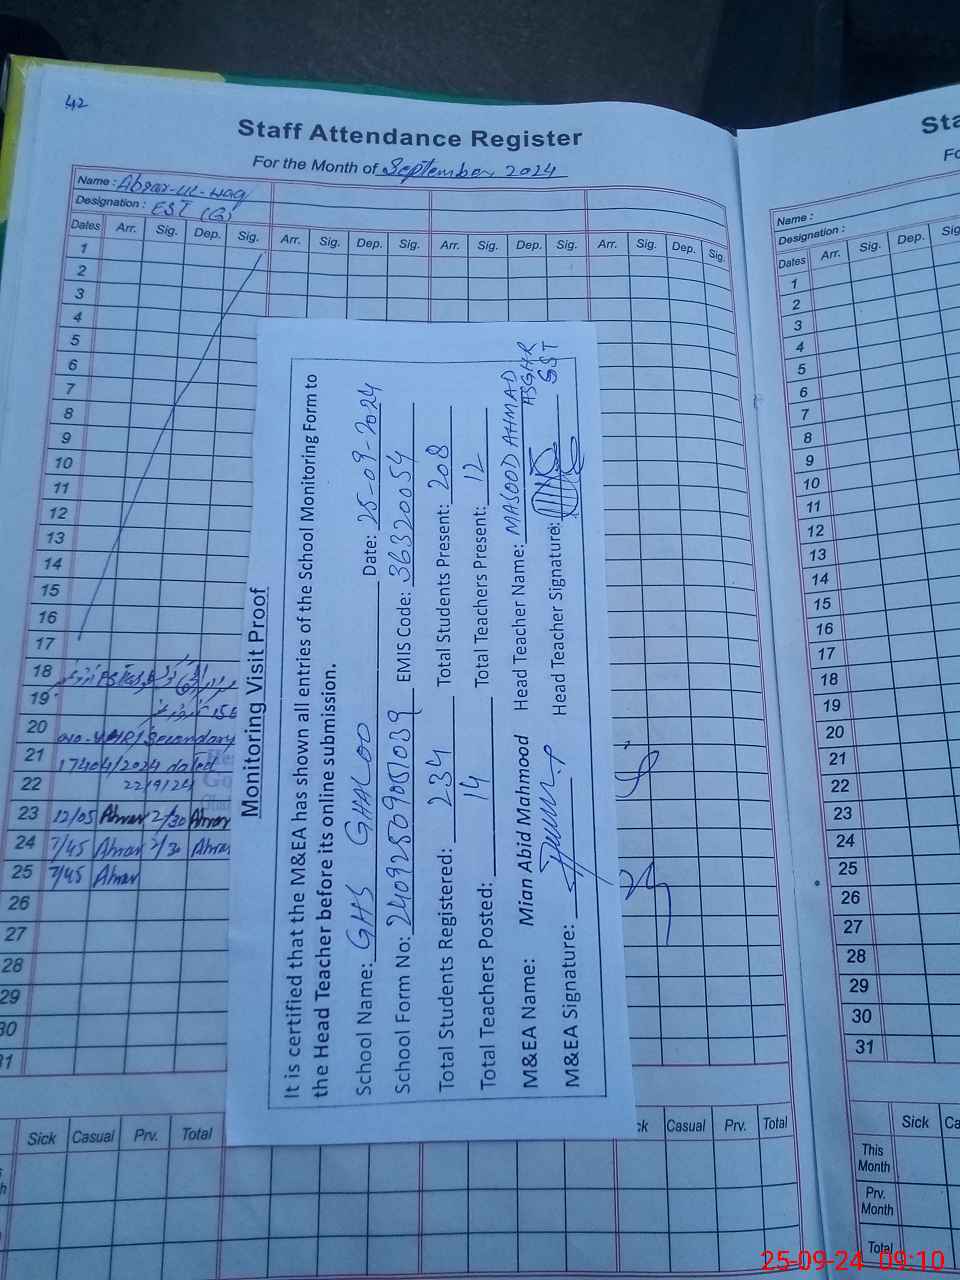 42
Staff Attendance Register
For the Month of September 2024
Name : Abrar-ul-Haq
Designation : EST (G)
Dates Arr. Sig. Dep. Sig. Arr. Sig. Dep. Sig. Arr. Sig. Dep. Sig. Arr. Sig. Dep. Sig.
1
2
3
4
5
6
7
8
9
10
11
12
13
14
15
16
17
18
19
20 Secondary
21 17404/2024 dated
22 22/9/24
23 12/05 Abrar 2/30 Abrar
24 7/45 Abrar 2/30 Abrar
25 7/45 Abrar
26
27
28
29
30
31
Sick Casual Prv. Total
Casual Prv. Total
Monitoring Visit Proof
It is certified that the M&EA has shown all entries of the School Monitoring Form to
the Head Teacher before its online submission.
School Name: GHS GHALOO Date: 25-09-2024
School Form No: EMIS Code: 36320054
Total Students Registered: 234 Total Students Present: 208
Total Teachers Posted: 14 Total Teachers Present: 12
M&EA Name: Mian Abid Mahmood Head Teacher Name: MASOOD AHMAD
ASGHR
M&EA Signature: Head Teacher Signature: SST
Sta
Name :
Designation :
Dates Arr. Sig. Dep. Sig
1
2
3
4
5
6
7
8
9
10
11
12
13
14
15
16
17
18
19
20
21
22
23
24
25
26
27
28
29
30
31
Sick
This
Month
Prv.
Month
Total
25-09-24 09:10